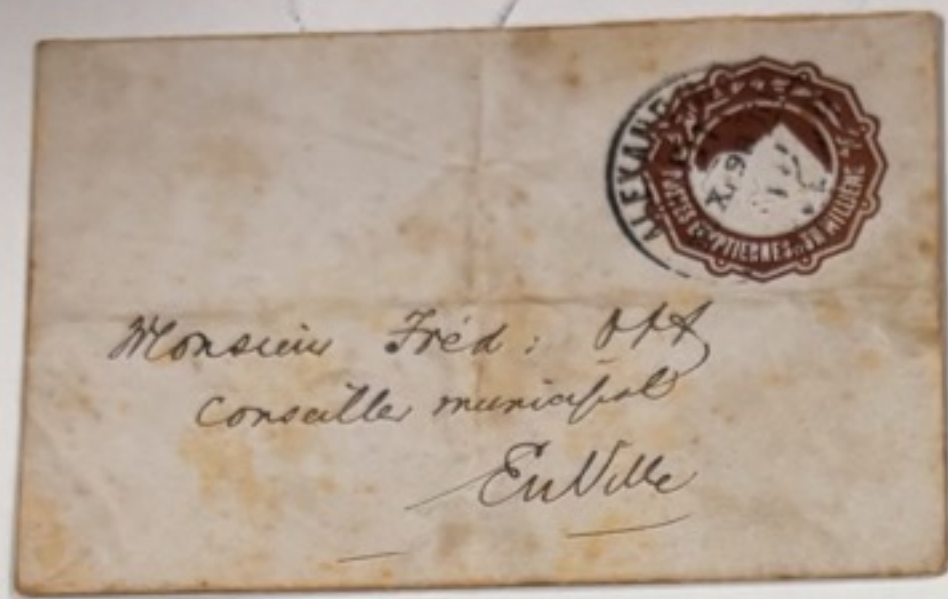 ALEXAND
POSTES EGYPTIENNES UN MILLIEME
Monsieur Fréd: Ott
Conseiller municipal
En Ville